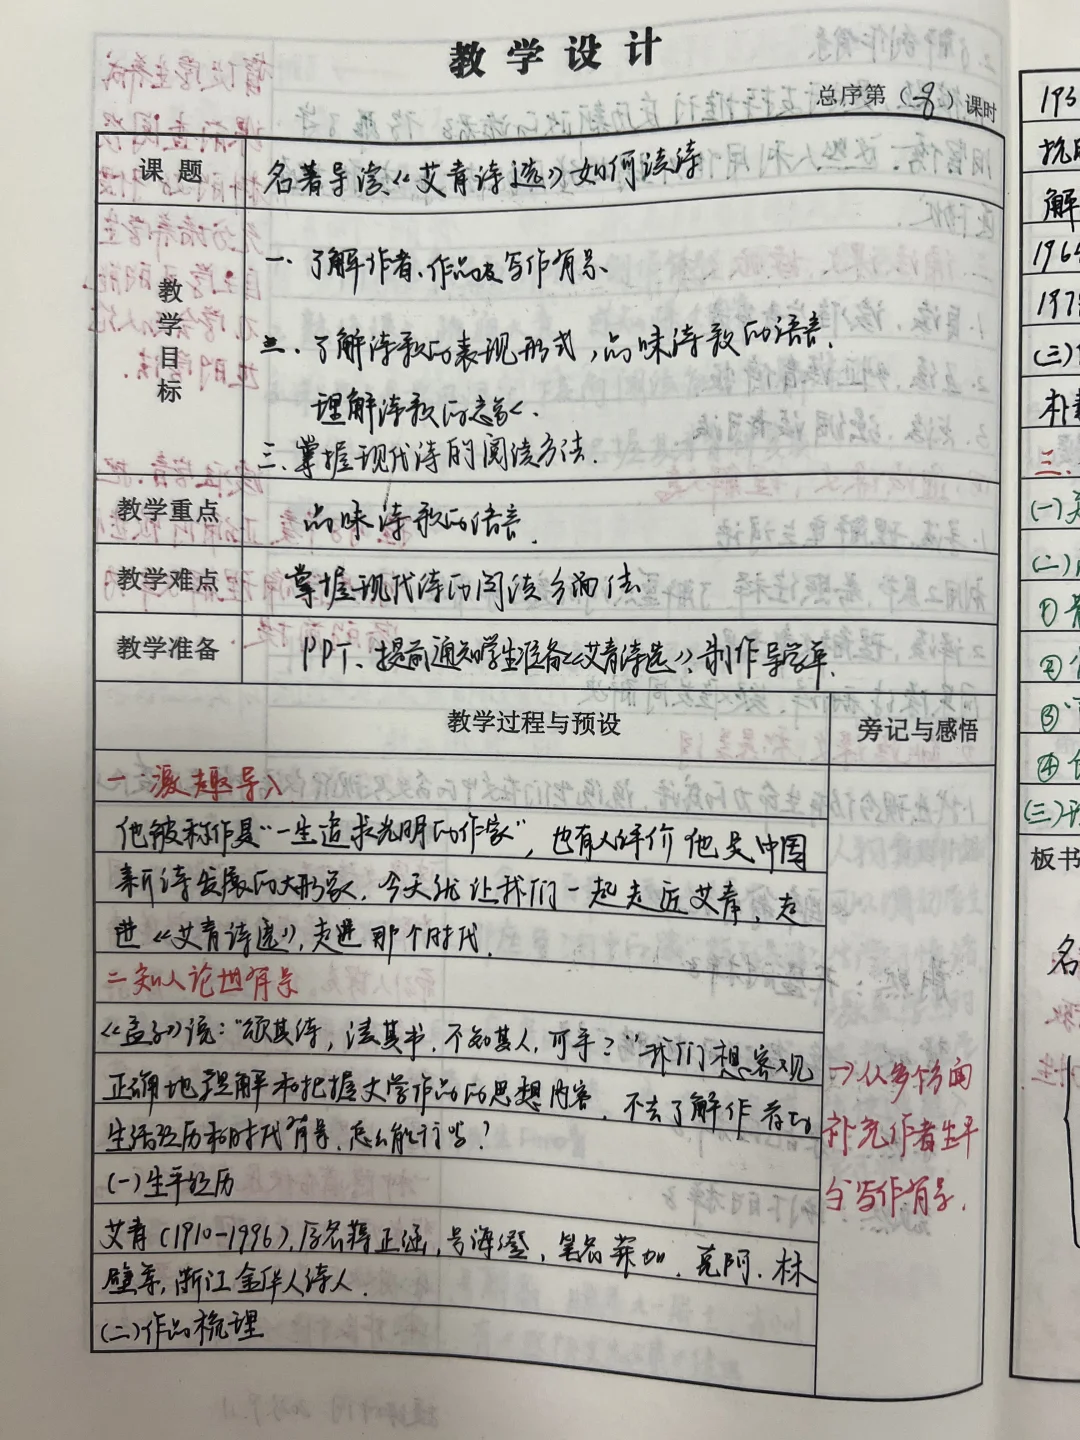 教学设计
总序第( 8 )课时
课题
名著导读《艾青诗选》如何读诗
教学目标
一、了解作者、作品及写作背景、
二、了解诗歌的表现形式，品味诗歌的语言.
理解诗歌的意象、
三、掌握现代诗的阅读方法.
教学重点
品味诗歌的语言.
教学难点
掌握现代诗的阅读方法
教学准备
PPT、提前通知学生准备《艾青诗选》、制作导学单.
教学过程与预设
旁记与感悟
一、激趣导入
他被称作是"一生追求光明的作家"，也有人评价他是中国
新诗发展的大形象，今天就让我们一起走近艾青，走
进《艾青诗选》，走进那个时代.
二知人论世背景
《孟子》说："颂其诗，读其书，不知其人，可乎？"我们想客观
正确地理解和把握文学作品的思想内容，不去了解作者的
生活经历和时代背景，怎么能行呢？
(一)生平经历
艾青(1910-1996)，原名蒋正涵，号海澄，笔名莪加、克阿、林
壁等，浙江金华人诗人.
(二)作品梳理
→从多方面
补充作者生平
与写作背景.
193
抗
解
196
197
(三)
朴
三、
(一)
(二)
①
②
③
④
(三)
板书
名